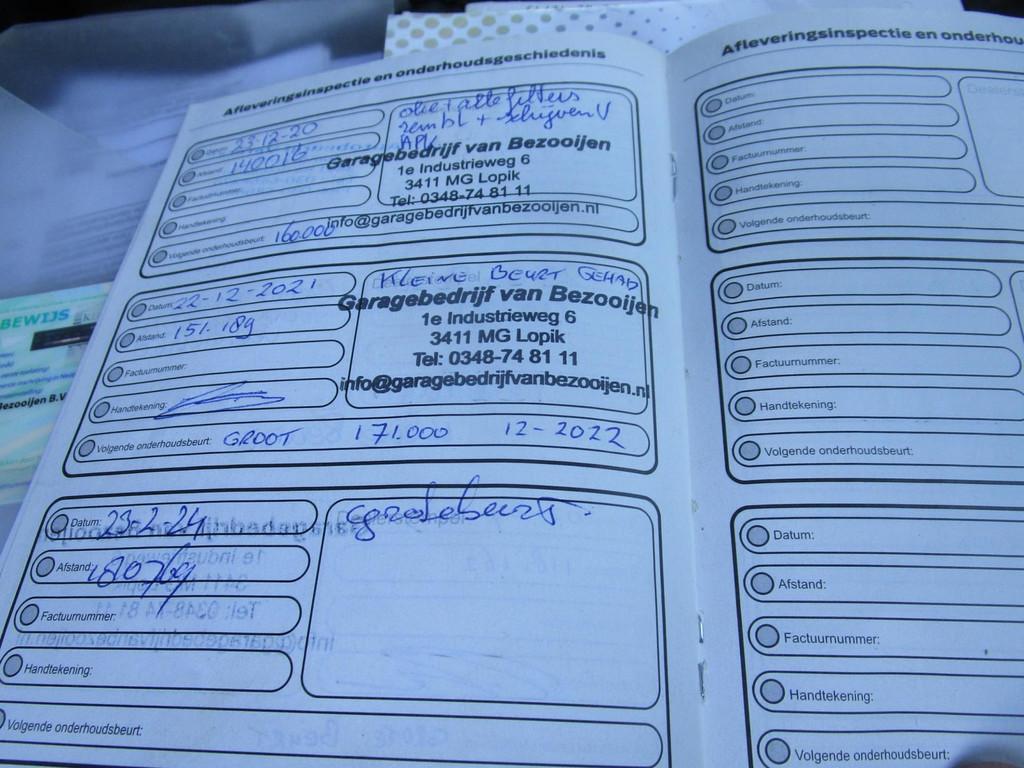 Afleveringsinspectie en onderhoudsgeschiedenis
Datum: 23-12-20
Afstand: 140016
Factuurnummer:
Handtekening:
Volgende onderhoudsbeurt: 160.000
olie + alle filters
rem bl + schijven V
APK
Garagebedrijf van Bezooijen
1e Industrieweg 6
3411 MG Lopik
Tel: 0348-74 81 11
info@garagebedrijfvanbezooijen.nl
Datum: 22-12-2021
Afstand: 151.189
Factuurnummer:
Handtekening:
KLEINE BEURT GEHAD
Garagebedrijf van Bezooijen
1e Industrieweg 6
3411 MG Lopik
Tel: 0348-74 81 11
info@garagebedrijfvanbezooijen.nl
Volgende onderhoudsbeurt: GROOT 171.000 12-2022
Datum: 23-2-24
Afstand: 180769
Factuurnummer:
Handtekening:
grote beurt.
Volgende onderhoudsbeurt:
Afleveringsinspectie en onderhou
Datum:
Afstand:
Factuurnummer:
Handtekening:
Volgende onderhoudsbeurt:
Datum:
Afstand:
Factuurnummer:
Handtekening:
Volgende onderhoudsbeurt:
Datum:
Afstand:
Factuurnummer:
Handtekening:
Volgende onderhoudsbeurt:
BEWIJS
ezooijen B.V